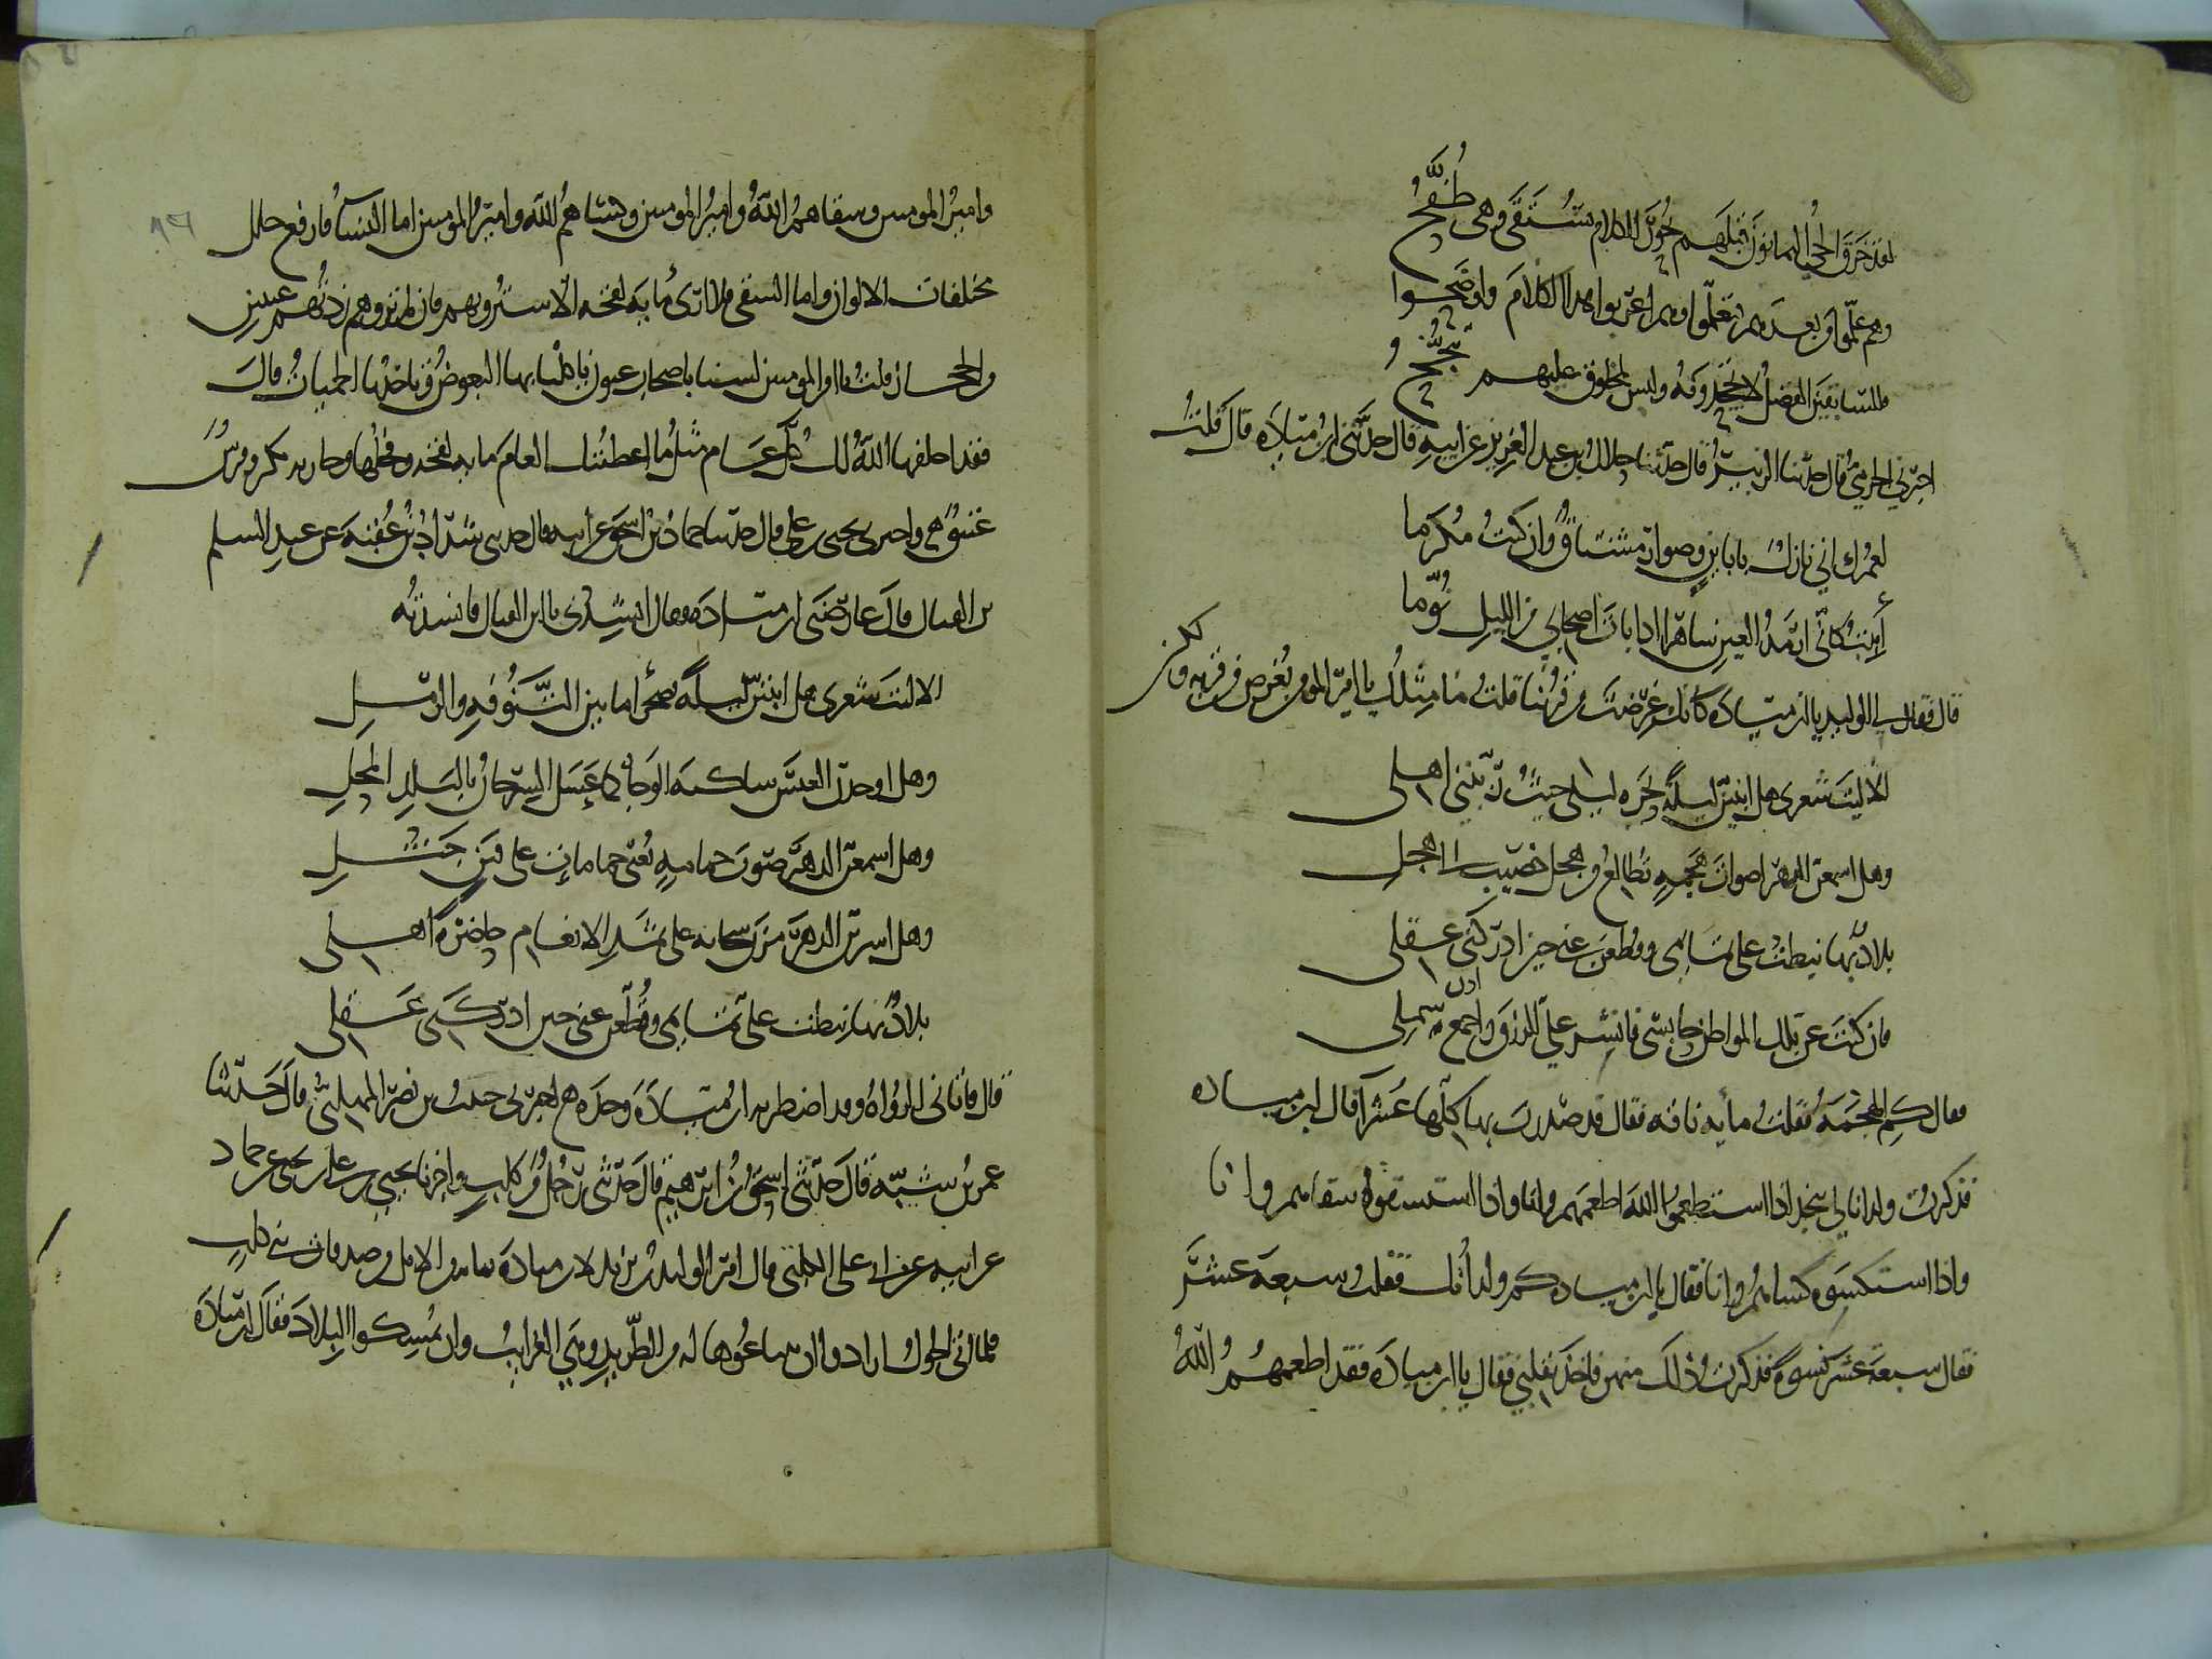 لقد خرق الحي اليمانون قبلهم بحور الكلام تستقى وهي طفح
وهم علموا من بعدهم فتعلموا وهم اعربوا هذا الكلام واوضحوا
فللسابقين الفضل لا يجحدونه وليس لمخلوق عليهم تبجح
اخبرني الحرمي قال حدثنا الزبير قال حدثنا جلال بن عبد العزيز عن ابيه قال حدثني ابن ميادة قال قلت
لعمرك اني نازل باباين وصوار مشتاق وان كنت مكرما
أبيت كأني ارمد العين ساهرا اذا بات اصحابي من الليل نوما
قال فقال لي الوليد يا ابن ميادة كانك غرضت من قربنا قلت ما مثلك يا امير المومنين يغرض من قربه ولكن
ألا ليت شعري هل ابيتن ليلة بحرة ليلى حيث ربتني اهلي
وهل اسمعن الدهر اصوات هجمة تطالع من هجل خصيب الى هجل
بلاد بها نيطت علي تمايمي وقطعن عني حين ادركني عقلي
فان كنت عن تلك المواطن حابسي فانشر علي الرزق واجمع اذن شملي
فقال كم الهجمة فقلت مأية ناقة فقال قد صدرت بها كلها عشرا قال ابن ميادة
فذكرت ولدانا لي بنجد اذا استطعموا الله اطعمهم وانا واذا استسقوه سقاهم وانا
واذا استكسوه كساهم وانا فقال يا ابن ميادة كم ولدانك فقلت سبعة عشر
فقال سبعة عشر كنسوة فذكرت ذلك منهن فاخذ بقلبي فقال يا ابن ميادة فقد اطعمهم الله
وامير المومنين وسقاهم الله وامير المومنين وكساهم الله وامير المومنين اما النسآ فاربع حلل
مختلفات الالوان واما السقي فلا ارى مأية لقحة الا سترويهم فان لم تروهم زدتهم عينين
والحجاز قلت يا امير المومنين لسنا باصحاب عيون ياكلنا بها البعوض وتاخذنا الحميات قال
فقد اخلفها الله لك كل عام مثل ما اعطيتك العام مأية لقحة وفحلها وجارية بكر وفرس
عتيق واخبرني يحيى بن علي قال حدثنا حماد بن اسحق عن ابيه قال حدثني شداد بن عقبة عن عبد السلم
بن القتال قال عارضني ابن ميادة فقال انشدني يا ابن القتال فانشدته
الا ليت شعري هل ابيتن ليلة بصحرا ما بين التنوفة والرمل
وهل اوحدن العيس ساكنة الوجا كما عسل السرحان بالبلد المحل
وهل اسمعن الدهر صوت حمامة تغني حمامات على فنن جثل
وهل اشربن الدهر مزن سحابة على ثمد الافعاة حاضره اهلي
بلاد بها نيطت علي تمايمي وقطعن عني حين ادركني عقلي
قال فاتاني الرواة وقد اضطرب ابن ميادة وحده اخبرني حبيب بن نصر المهلبي قال حدثنا
عمر بن شبة قال حدثني اسحق بن ابرهيم قال حدثني رجل من كلب واخبرنا يحيى بن علي بن يحيى عن حماد
عن ابيه عن ابي علي الكلبي قال امر الوليد بن يزيد لابن ميادة بماية من الابل من صدقات بني كلب
فلما اتى الحول ارادوا ان يبتاعوها له من الطريد وهي الغرايب وان يمسكوا التلاد فقال ابن ميادة